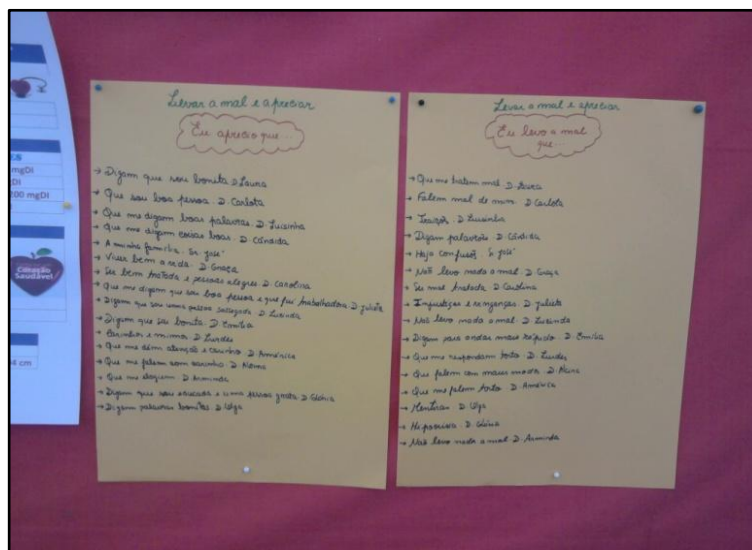 mgDl
gDl
200 mgDl
Coração
Saudável
4 cm
Levar a mal e apreciar
Eu aprecio que...
→ Digam que sou bonita. D. Laura
→ Que sou boa pessoa. D. Carlota
→ Que me digam boas palavras. D. Luisinha
→ Que me digam coisas boas. D. Cândida
→ A minha família. Sr. José
→ Viver bem a vida. D. Graça
→ Ser bem tratada e pessoas alegres. D. Carolina
→ Que me digam que sou boa pessoa e que fui trabalhadora. D. Julieta
→ Digam que sou uma pessoa D. Luzinda
→ Digam que sou bonita. D. Emília
→ Carinhos e mimos. D. Lurdes
→ Que me dêm atenção e carinho. D. América
→ Que me falem com carinho. D.
→ Que me elogiem. D. Arminda
→ Digam que sou educada e uma pessoa grata. D. Glória
→ Digam palavras bonitas. D. Olga
Levar a mal e apreciar
Eu levo a mal
que...
→ Que me tratem mal. D. Laura
→ Falem mal de mim. D. Carlota
→ Traição. D. Luisinha
→ Digam palavrões. D. Cândida
→ Haja confusão. Sr. José
→ Não levo nada a mal. D. Graça
→ Ser mal tratada. D. Carolina
→ Injustiças e vinganças. D. Julieta
→ Não levo nada a mal. D. Luzinda
→ Digam para andar mais rápido. D. Emília
→ Que me respondam torto. D. Lurdes
→ Que falem com maus modos. D.
→ Que me falem torto. D. América
→ Mentiras. D. Olga
→ Hipocrisia. D. Glória
→ Não levo nada a mal. D. Arminda